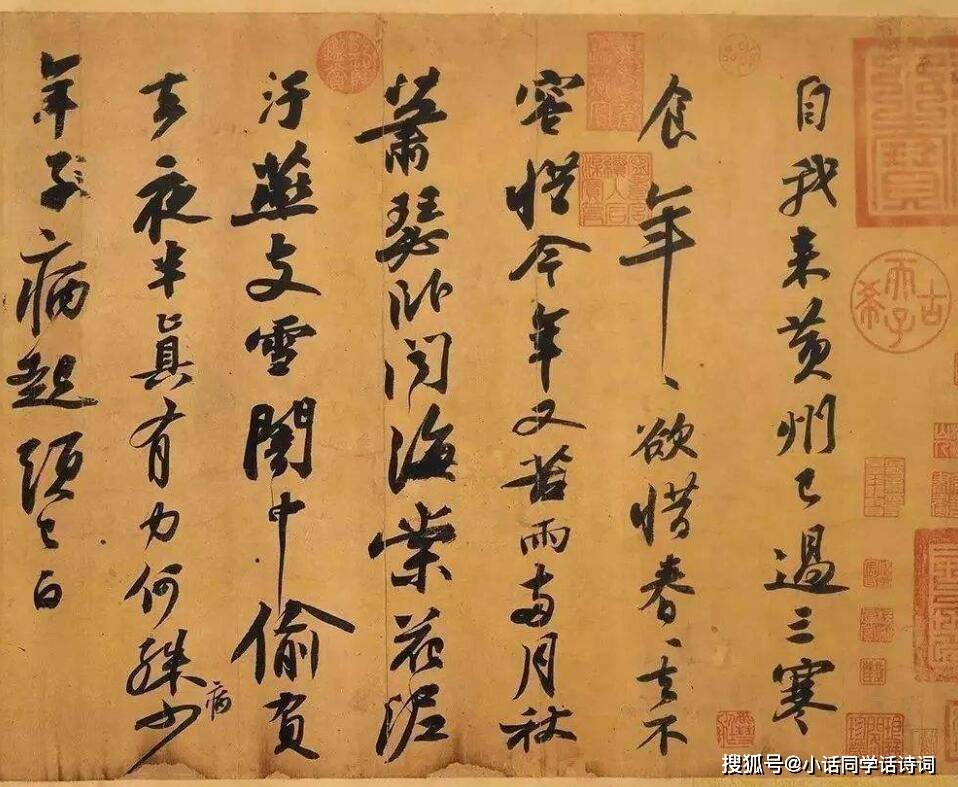 自我来黄州已過三寒
食年〻欲惜春〻去不
容惜今年又苦雨兩月秋
蕭瑟卧聞海棠花泥
汙燕支雪闇中偷負
去夜半真有力何殊少
病
年子病起頭已白
古希天子
搜狐号@小话同学话诗词